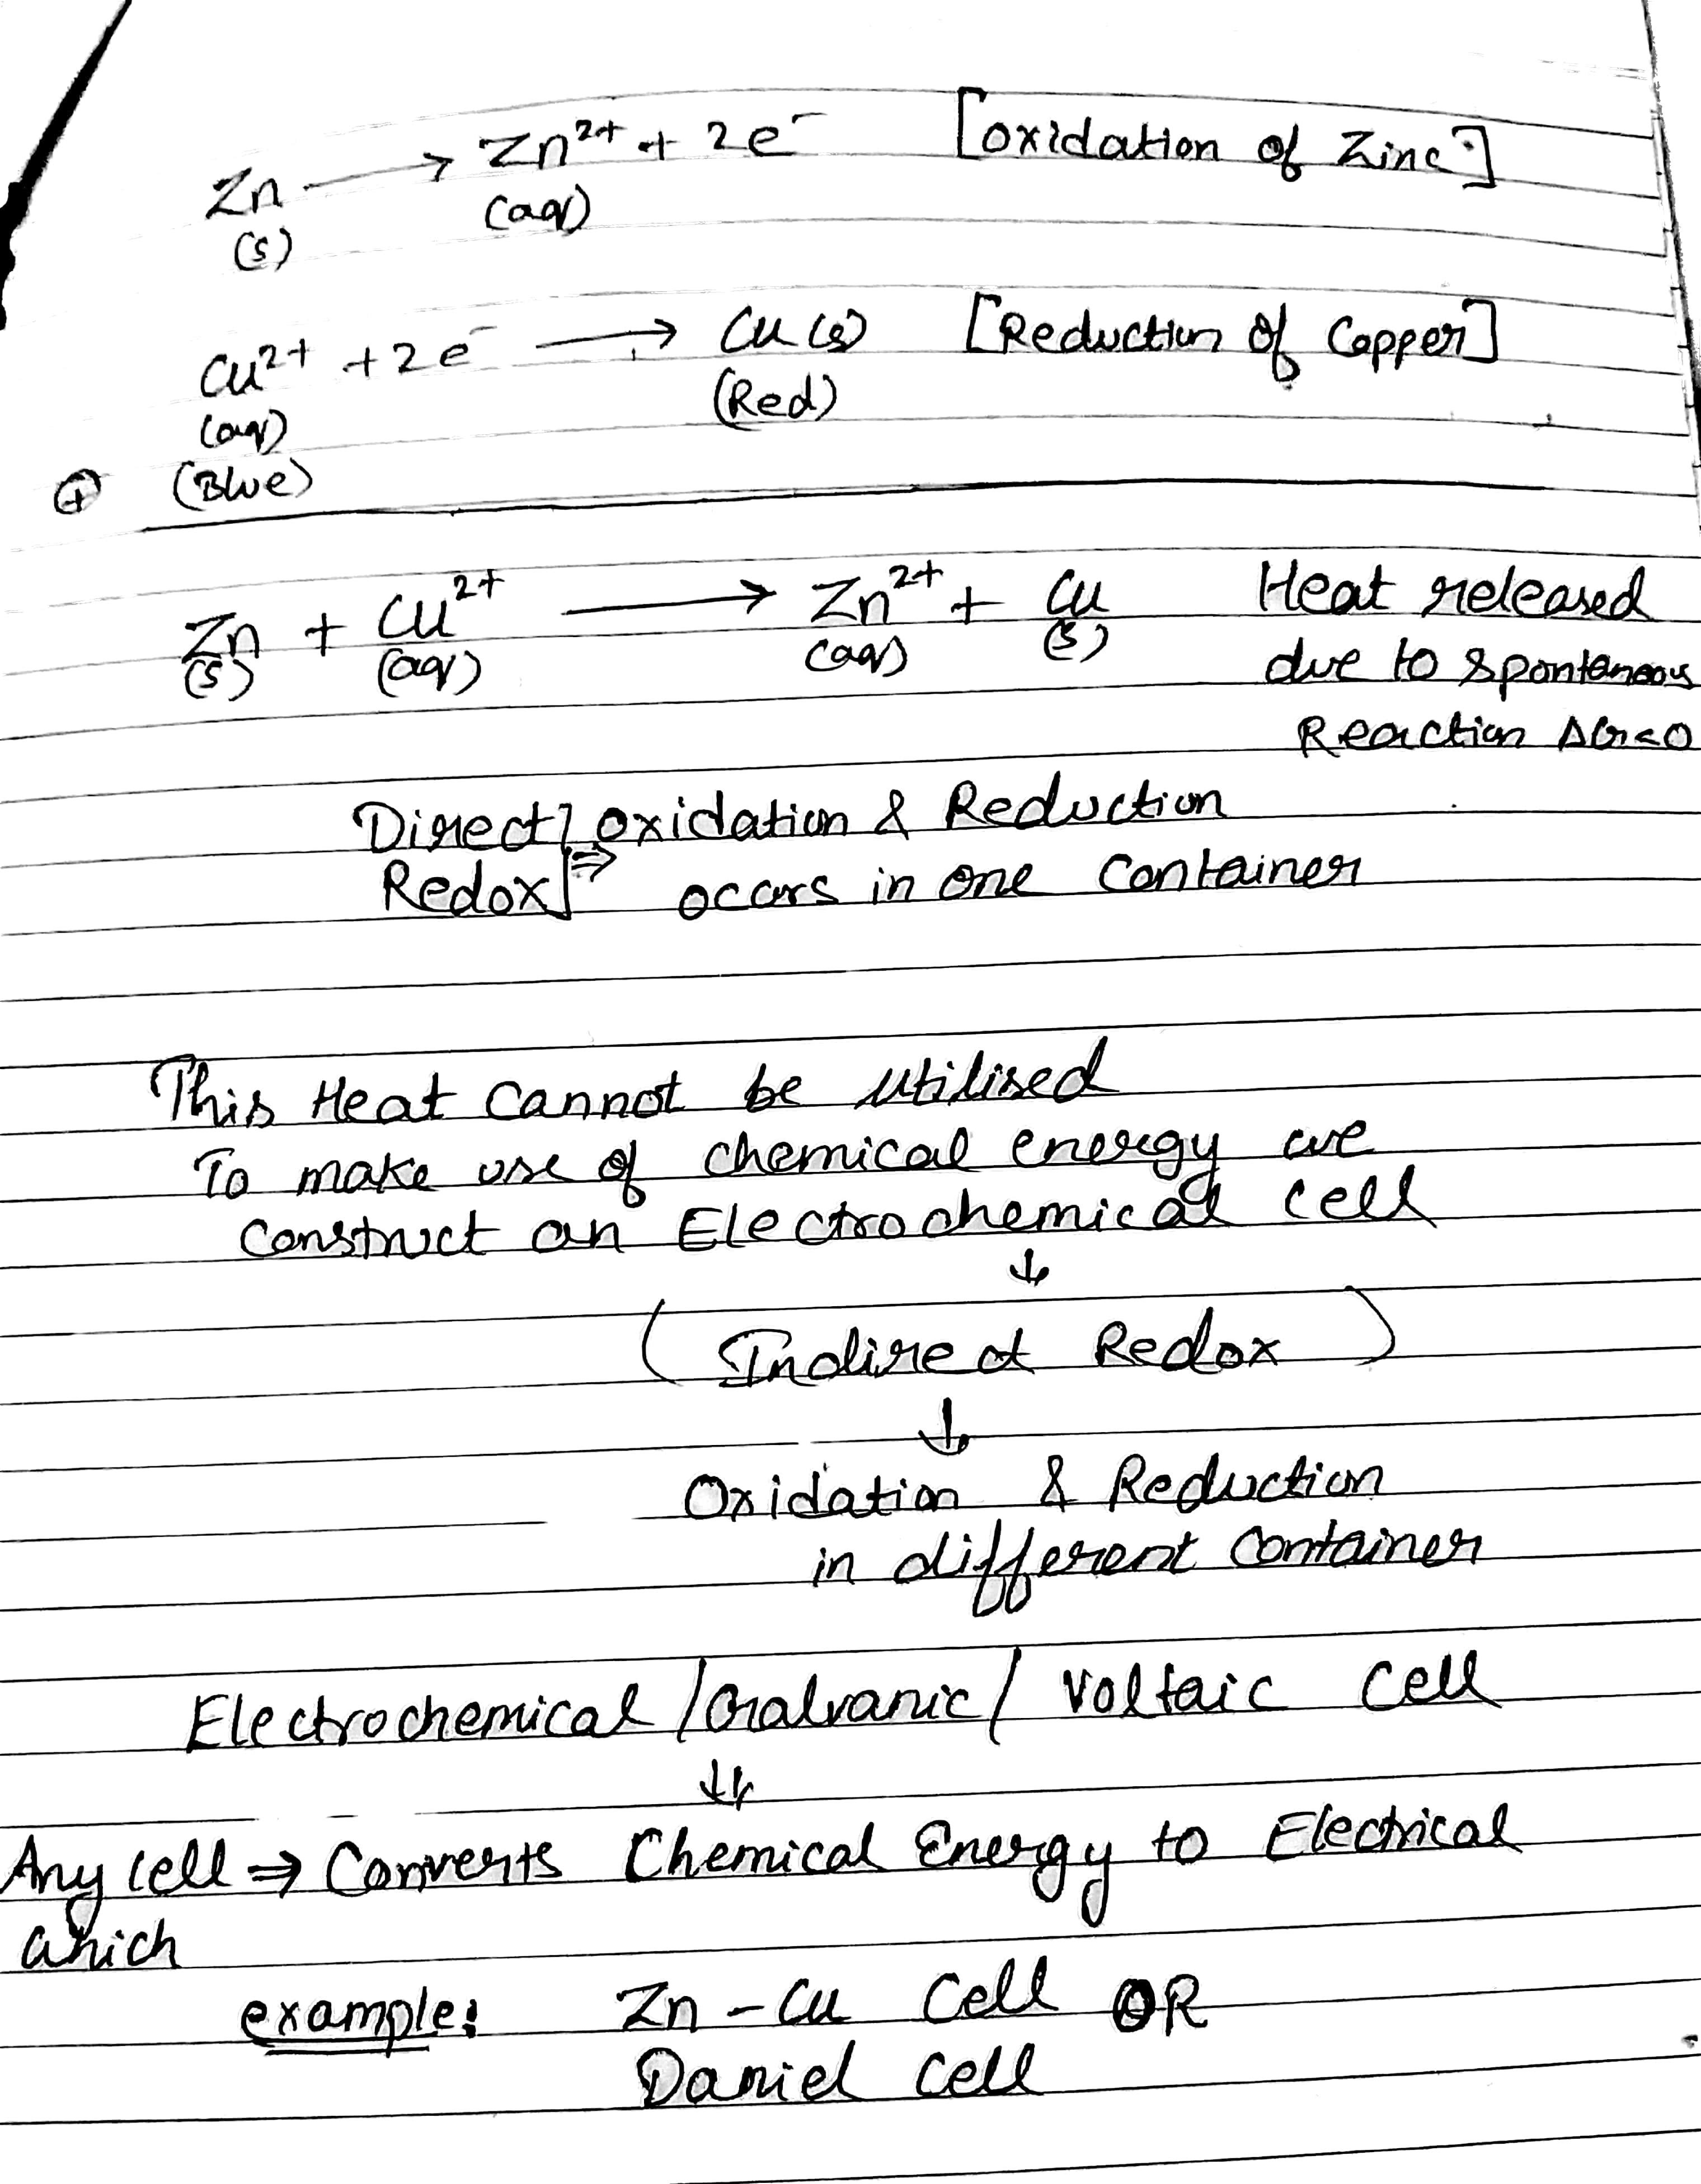 Zn (s) ⟶ Zn²⁺ (aq) + 2e⁻ [oxidation of Zinc]
Cu²⁺ (aq) (Blue) + 2e⁻ ⟶ Cu (s) (Red) [Reduction of Copper]
⊕
Zn (s) + Cu²⁺ (aq) ⟶ Zn²⁺ (aq) + Cu (s) Heat released
due to spontaneous
Reaction ΔG<0
Direct Redox ⇒ oxidation & Reduction
occurs in one container
This Heat cannot be utilised
To make use of chemical energy we
construct an Electrochemical cell
↓
(Indirect Redox)
↓
Oxidation & Reduction
in different container
Electrochemical / Galvanic / Voltaic Cell
⇓
Any cell which ⇒ Converts Chemical Energy to Electrical
example: Zn - Cu Cell OR
Daniel Cell